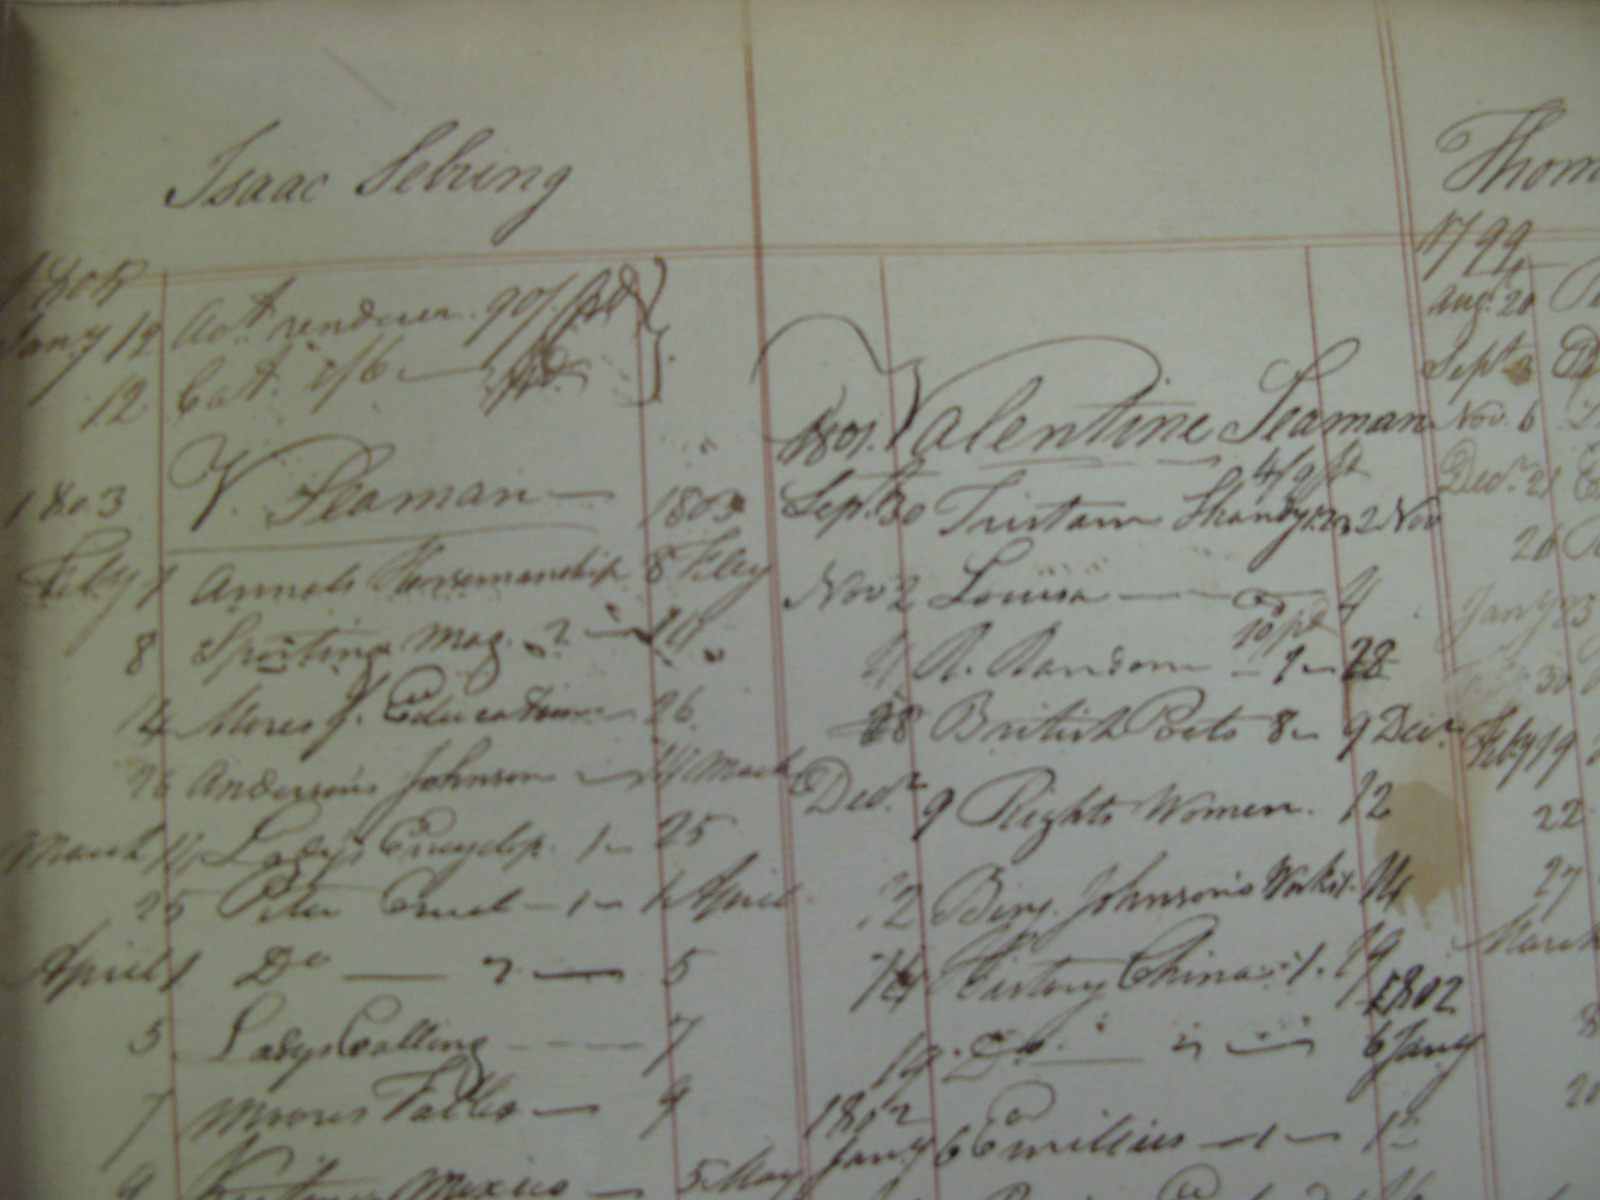 Isaac Sebring
Jany 12 Act. rendered. 90/. pd
12 Cat. 1/6 — pd
1803 V. Seaman — 1803
Feby 1 Annals Horsemanship 8 Feby
8 Sporting Mag. 2 — 14
14 Mores f. Education — 26
26 Anderson's Johnson — 14 March
March 14 Ladys Encyclop. 1 — 25
25 Peter — 1 — 1 April
April 1 Do — 2 — 5
5 Ladys Calling — 7
7 Moores Fables — 9
9 Mexico — 5 May
1801. Valentine Seaman
4/9 pd
Sept. 30 Tristam Shandy 2 Nov
Nov 2 Louisa — 4
10/ pd
4 R. Random — 1 — 28
28 British Poets 8 — 9 Decr.
Decr. 9 Rights Women. 12
12 Benj. Johnson's Works 1. 14
14 History China. 1. 19
1802
19. Do. — 2 — 6 Jany
1802
Jany 6 Emilius — 1 — 12
Thom
1799
Aug. 20
Sept. 3
Nov. 6
Decr. 21
26
Jany 23
30
Feby 19
22
27
March
20